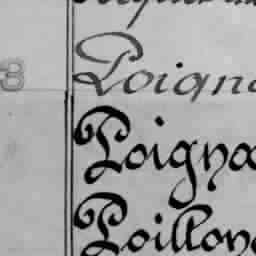 8
Poigna
Poigna
Poillon